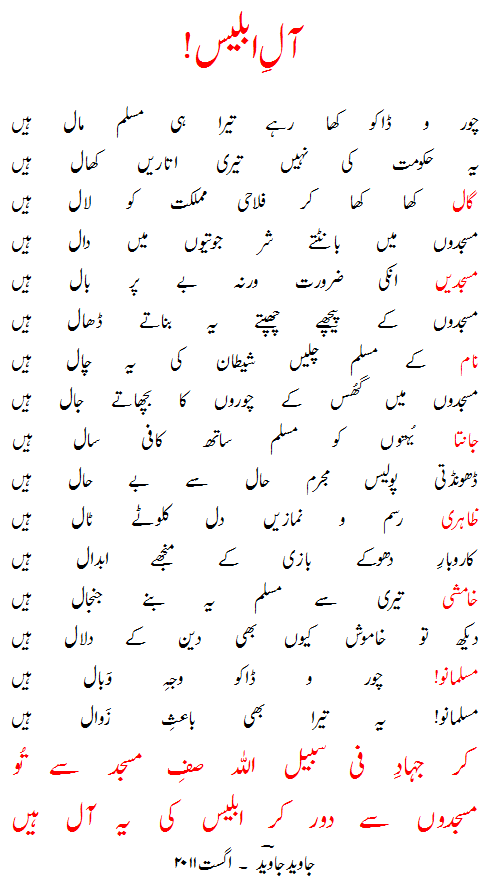 آلِ ابلیس!
چور و ڈاکو کھا رہے تیرا ہی مسلم مال ہیں
یہ حکومت کی نہیں تیری اتاریں کھال ہیں
گال کھا کھا کر فلاحی مملکت کو لال ہیں
مسجدوں میں بانٹتے شر جوتیوں میں دال ہیں
مسجدیں انکی ضرورت ورنہ بے پر بال ہیں
مسجدوں کے پیچھے چھپتے یہ بناتے ڈھال ہیں
نام کے مسلم چلیں شیطان کی یہ چال ہیں
مسجدوں میں گھُس کے چوروں کا بچھاتے جال ہیں
جانتا بُہتوں کو مسلم ساتھ کافی سال ہیں
ڈھونڈتی پولیس مجرم حال سے بے حال ہیں
ظاہری رسم و نمازیں دل کلوٹے ٹال ہیں
کاروبارِ دھوکے بازی کے منجھے ابدال ہیں
خامشی تیری سے مسلم یہ بنے جنجال ہیں
دیکھ تو خاموش کیوں بھی دین کے دلال ہیں
مسلمانو! چور و ڈاکو وجہِ وَبال ہیں
مسلمانو! یہ تیرا بھی باعثِ زَوال ہیں
کر جہادِ فی سبیل اللہ صفِ مسجد سے تُو
مسجدوں سے دور کر ابلیس کی یہ آل ہیں
جاوید جاوید ۔ اگست ۲۰۱۱